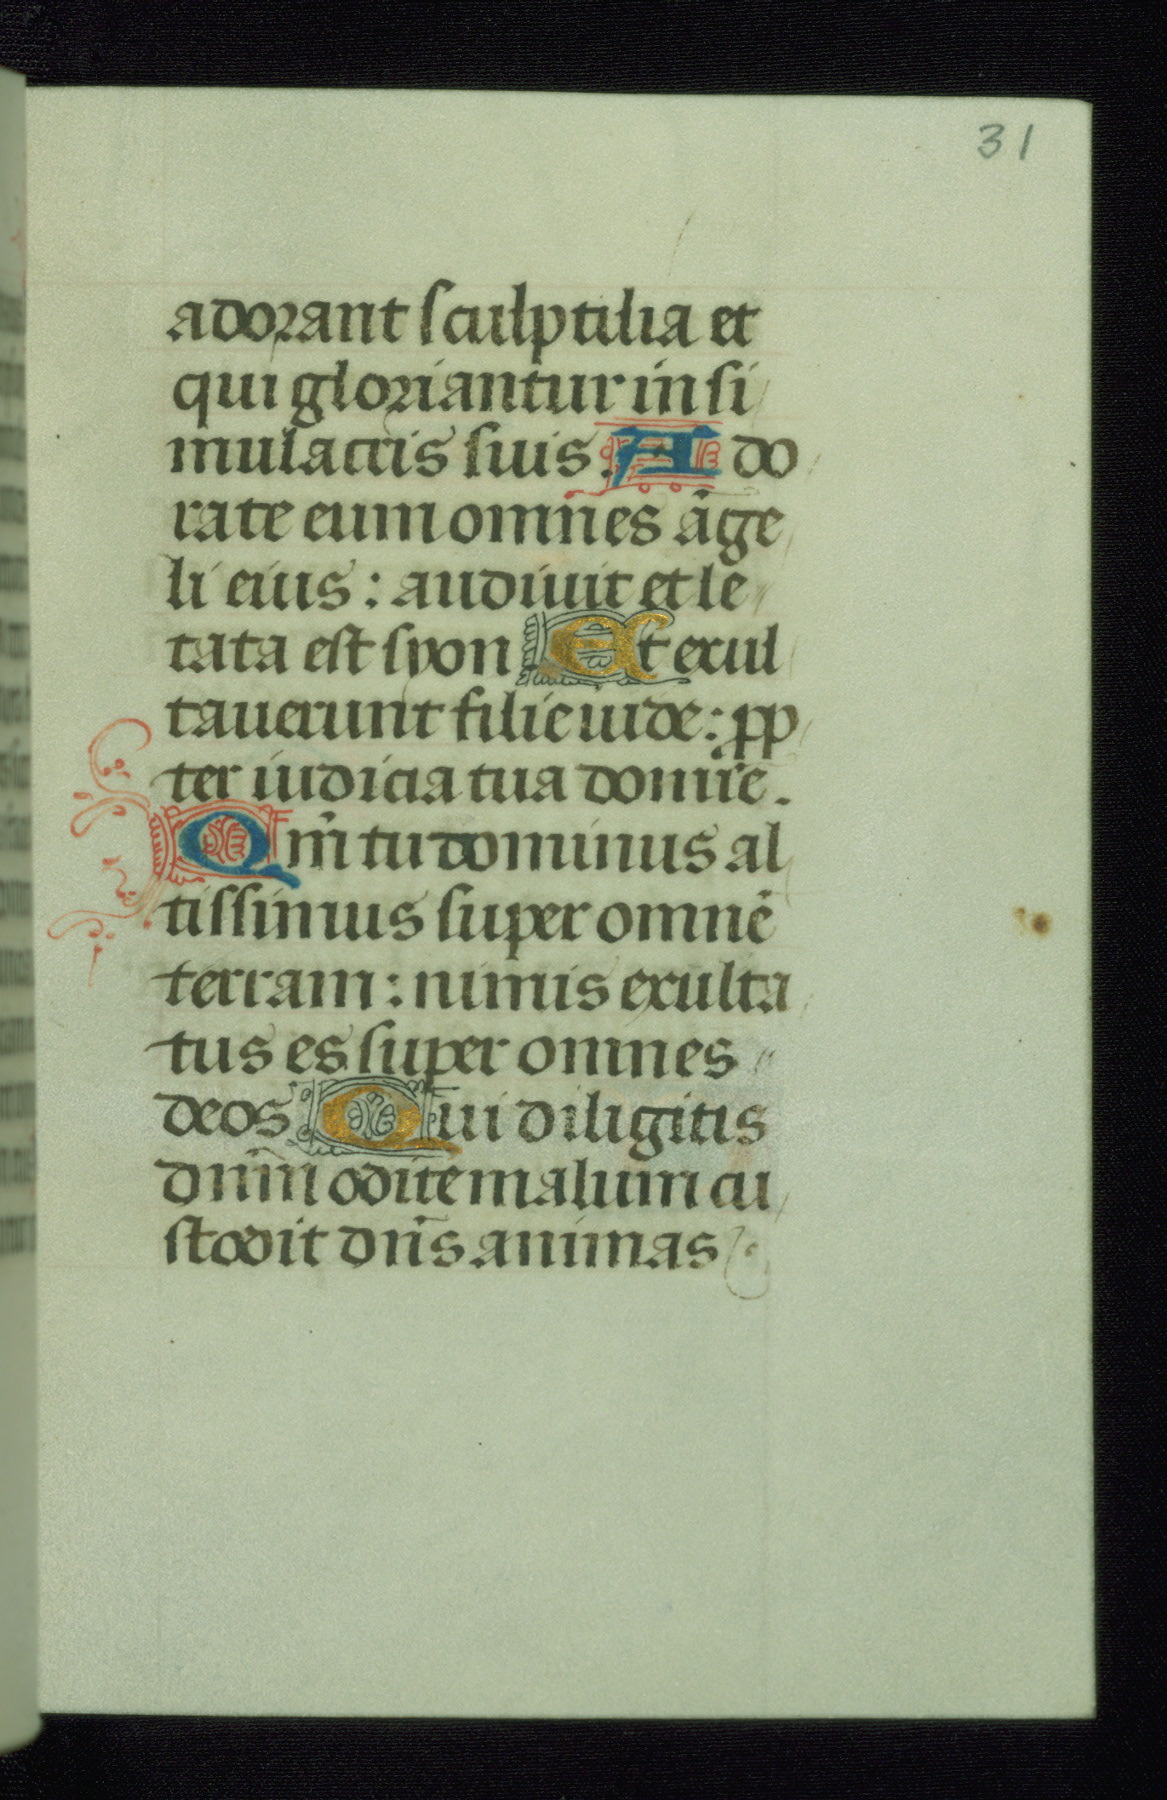 31
adorant sculptilia et
qui gloriantur in si
mulacris suis. Ado
rate eum omnes āge
li eius: audiuit et le
tata est syon Et exul
tauerunt filie iude: pp
ter iudicia tua domīe.
Qm̄ tu dominus al
tissimus super omnē
terram: nimis exulta
tus es super omnes
deos. Qui diligitis
dn̄m odite malum cu
stodit dn̄s animas